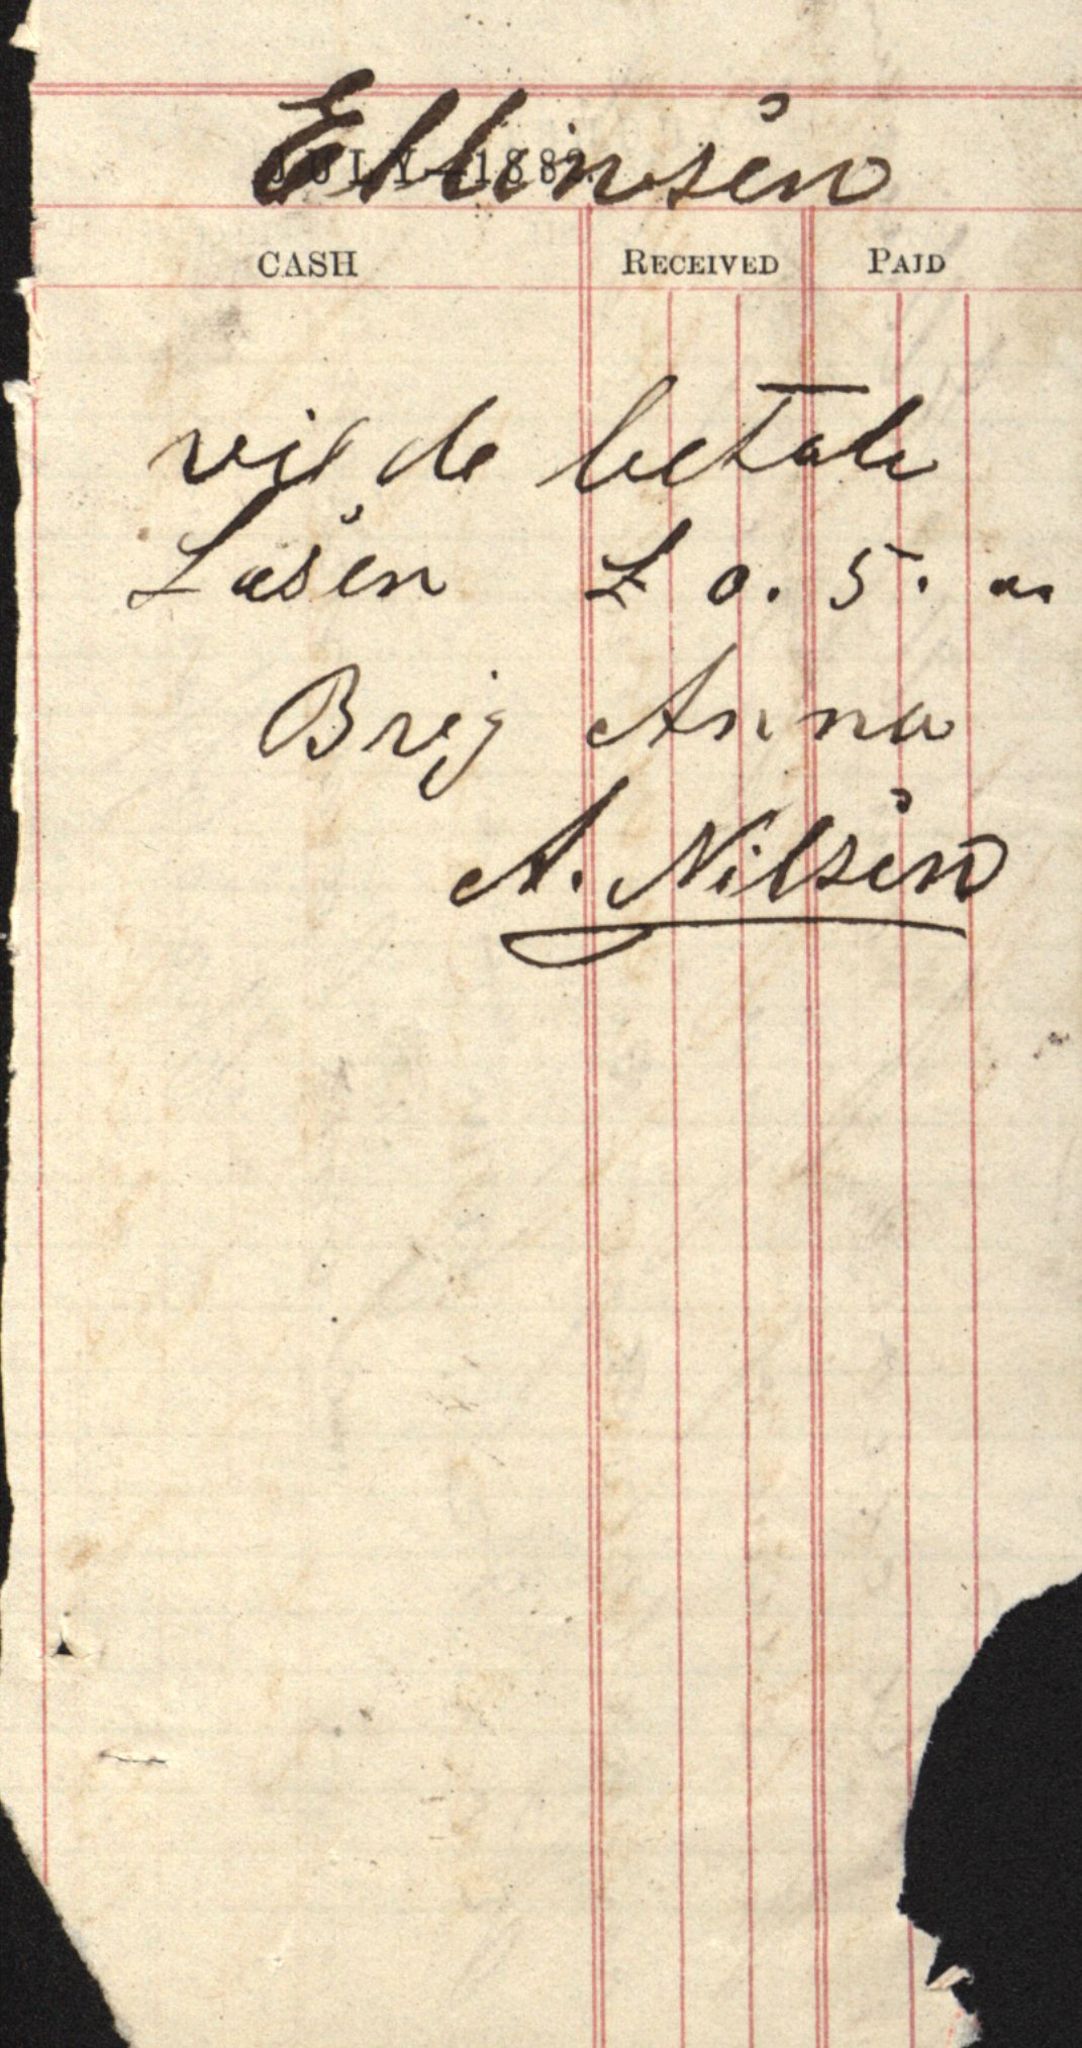 Ellinsen
JULY 1882.
CASH RECEIVED PAID
vil de betale
Losen £ 0. 5. "
Brig Anna
A. Nilsen